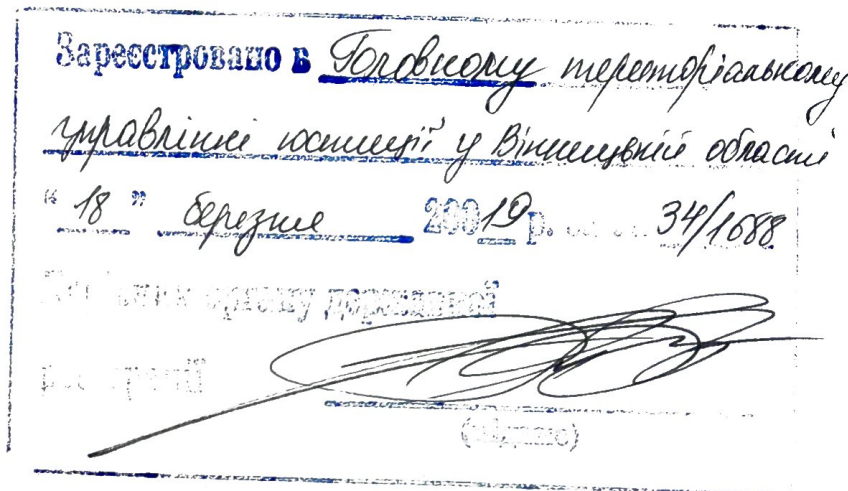 Зареєстровано в Головному територіальному
управлінні юстиції у Вінницькій області
“ 18 ” березня 200 19 р. за № 34/1688
Керівник органу державної
реєстрації
(підпис)